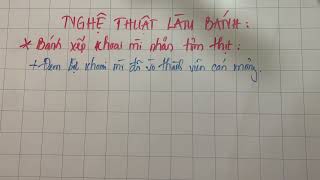 NGHỆ THUẬT LÀM BÁNH:
* Bánh xếp khoai mì nhân tôm thịt:
+ Đem bột khoai mì đã vo thành viên cán mỏng.